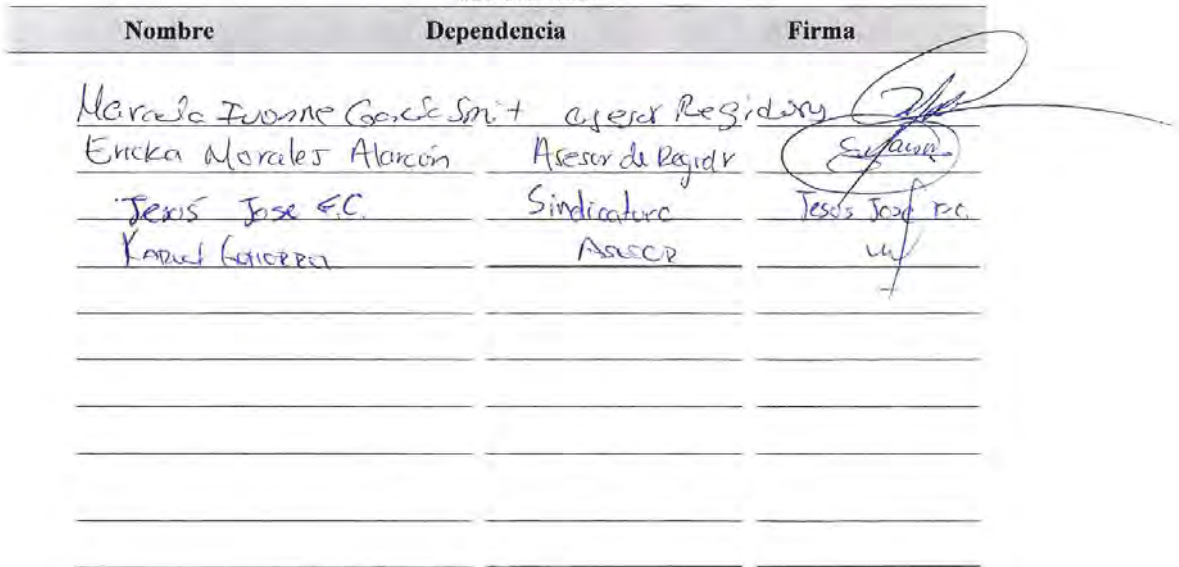 Nombre Dependencia Firma
Ivonne García Smit asesor Regidora
Ericka Morales Alarcón Asesor de Regidr
Jesús Jose F.C. Sindicatura Jesús José F.C.
Asesor